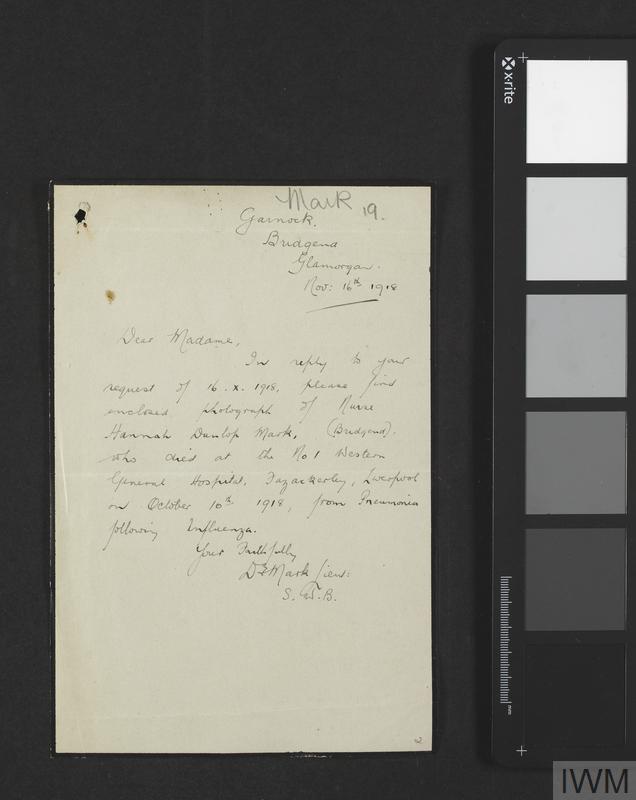 Mark 19.
Garnock.
Bridgend
Glamorgan.
Nov: 16th 1918
Dear Madame,
In reply to your
request of 16.x.1918, please find
enclosed photograph of Nurse
Hannah Dunlop Mark, (Bridgend).
who died at the No 1 Western
General Hospital, Fazackerley, Liverpool
on October 10th 1918, from Pneumonia
following Influenza.
Your Faithfully
Mark Lieut:
S.W.B.
2
x·rite
mm
IWM